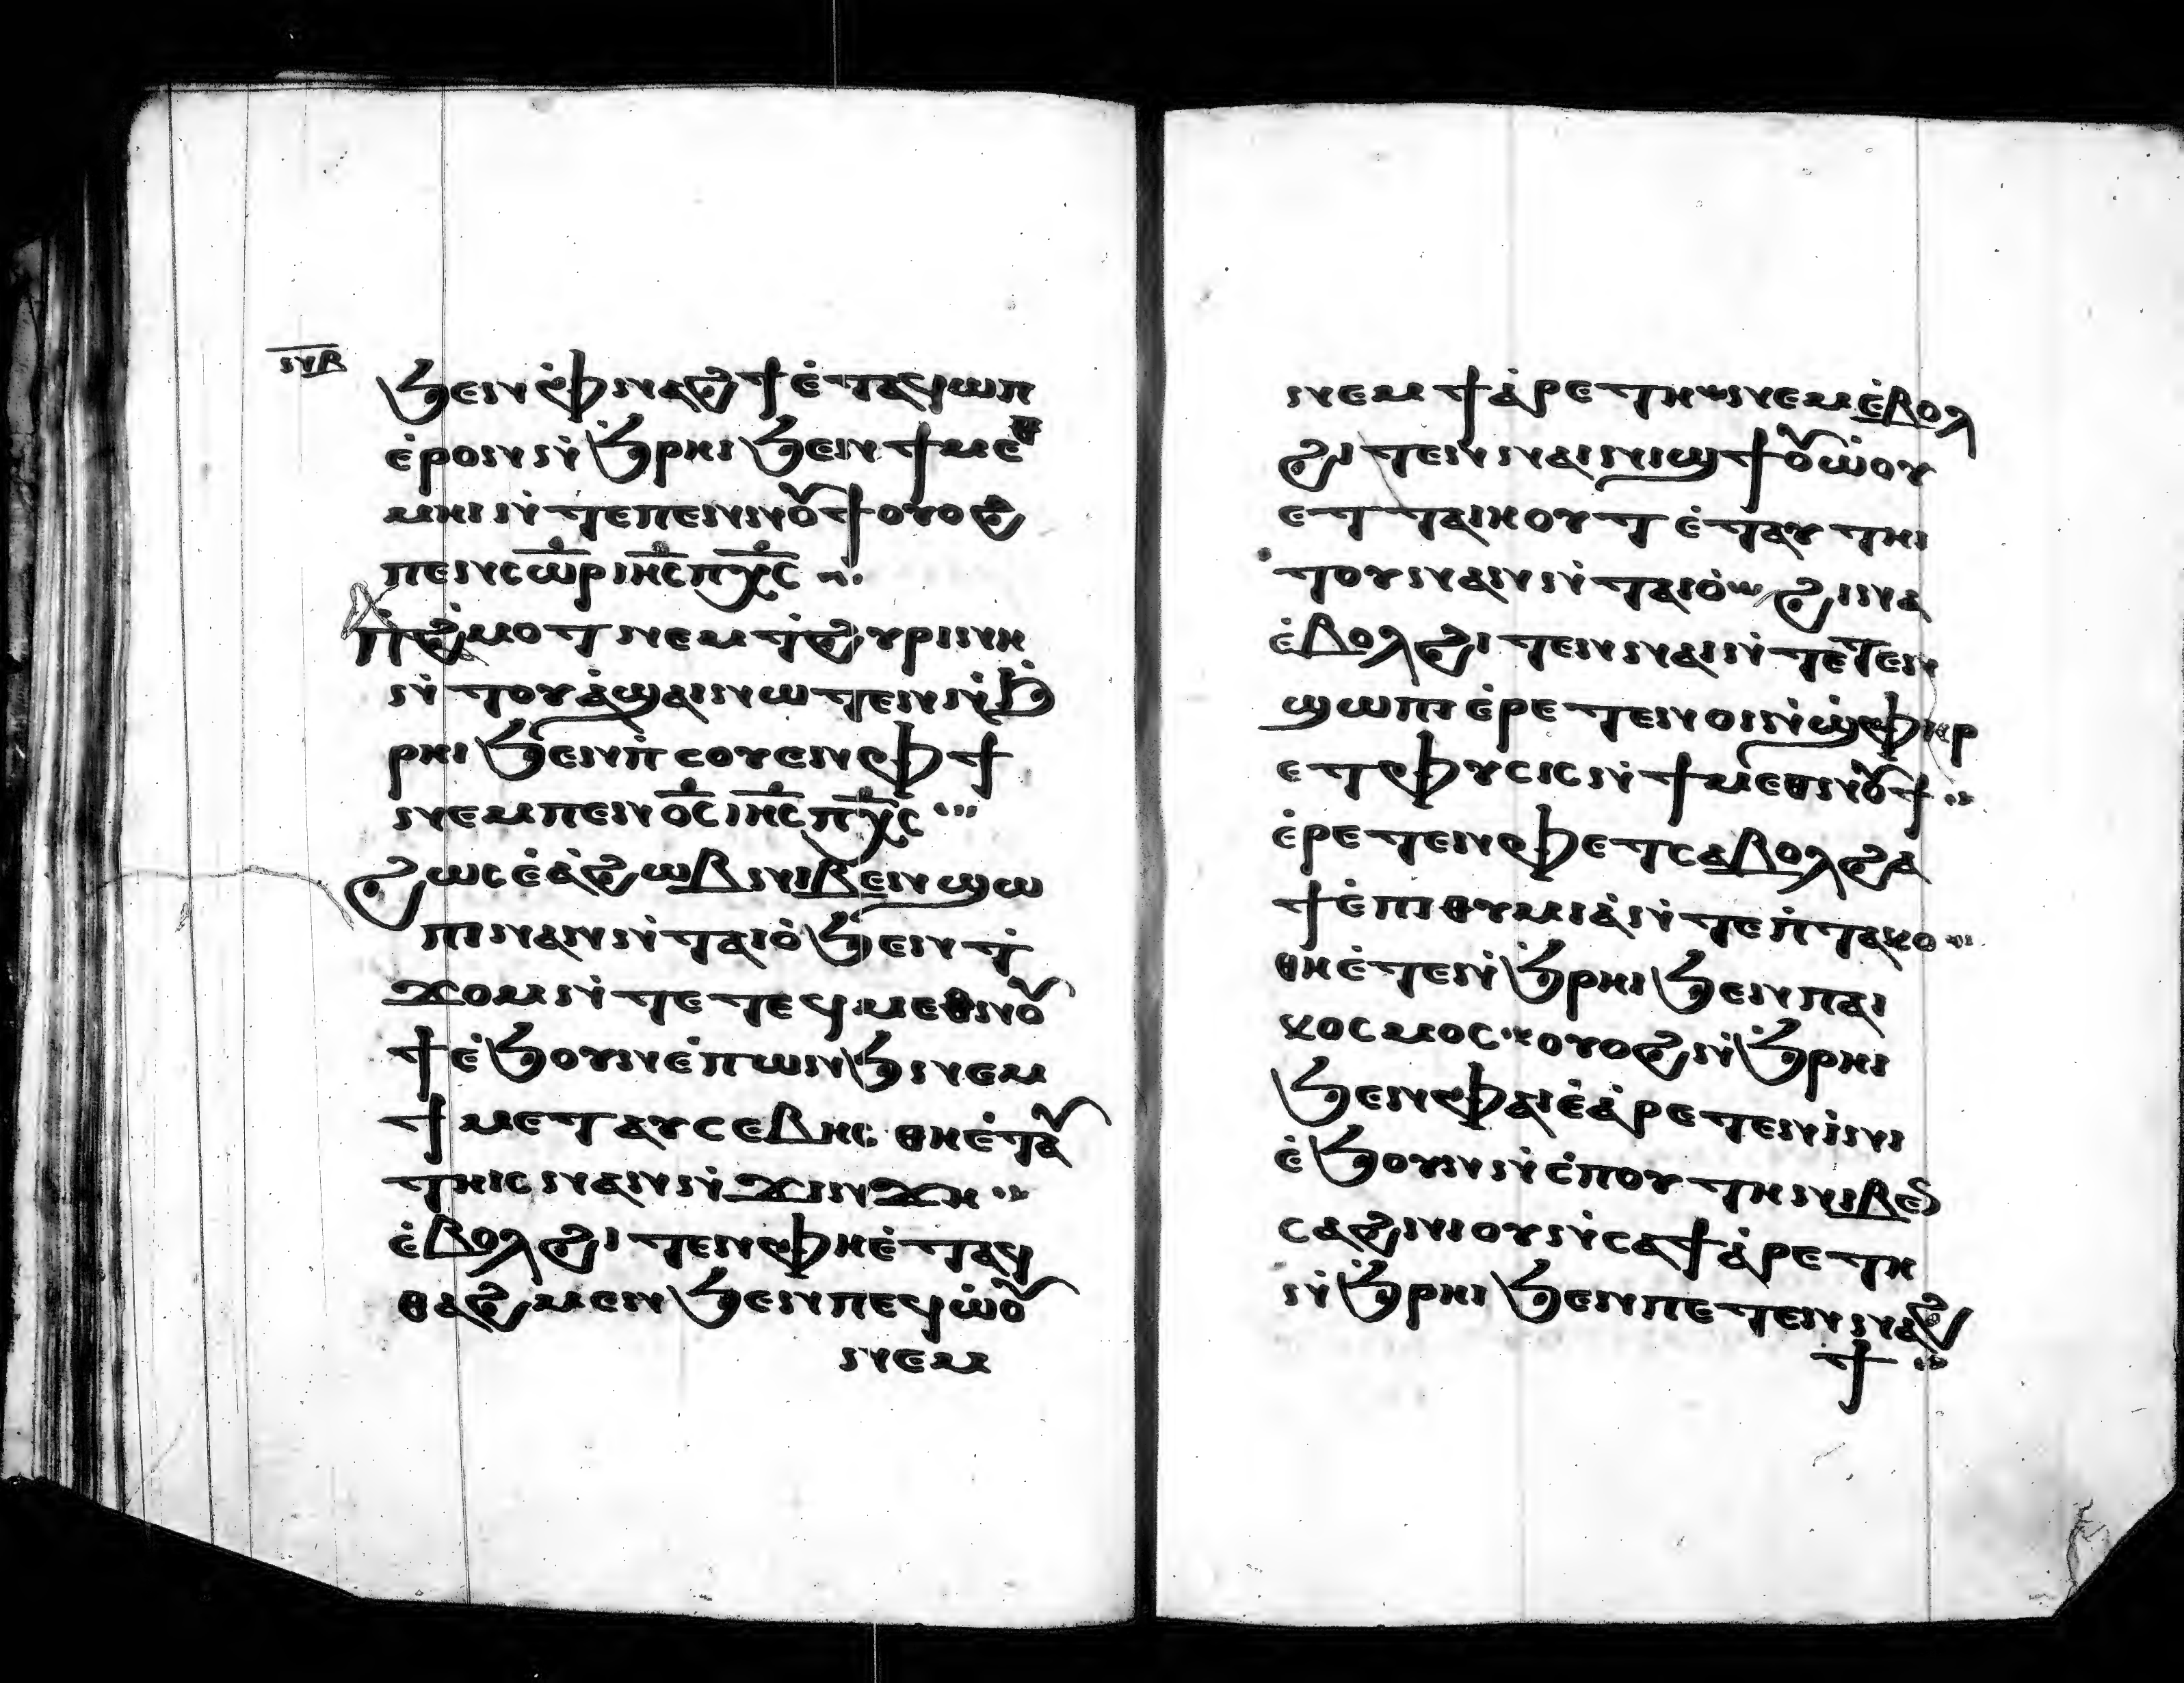 ⲛⲃ
ϧⲉⲛ ⲫ̇ⲛⲁϩϯ ⲉ̇ⲧⲁϥⲱⲡ
ⲉ̇ⲣⲟⲛ ⲛ̇ϧ̇ⲣⲏⲓ ϧⲉⲛ ϯⲙⲉⲑ
ⲙⲏⲓ ⲛ̇ⲧⲉ ⲡⲉⲛⲛⲟⲩϯ ⲟⲩⲟϩ
ⲡⲉⲛⲥⲱ̅ⲣ̅ ⲓⲏ̅ⲥ̅ ⲡⲭ̅ⲥ̅
ⲡ̇ϩ̇ⲙⲟⲧ ⲛⲉⲙ ⲧ̇ϩⲩⲣⲓⲛⲏ
ⲛ̇ⲧⲟⲩⲁ̇ϣⲁⲓ ⲛⲱⲧⲉⲛ ⲛ̇ϧ̇
ⲣⲏⲓ ϧⲉⲛ ⲡ̇ⲥⲟⲩⲉⲛ ⲫϯ
ⲛⲉⲙ ⲡⲉⲛⲟ̅ⲥ̅ ⲓⲏ̅ⲥ̅ ⲡⲭ̅ⲥ̅
ϩⲱⲥ ⲉ̇ⲁ̇ϩⲱⲃ ⲛⲓⲃⲉⲛ ϣⲱ
ⲡⲓ ⲛⲁⲛ ⲛ̇ⲧⲁⲓⲟ̇ ϧⲉⲛ ⲧ̇
ϫⲟⲙ ⲛ̇ⲧⲉ ⲧⲉϥⲙⲉⲑⲛⲟⲩ
ϯ ⲉ̇ϧⲟⲩⲛ ⲉ̇ⲡⲱⲛϧ ⲛⲉⲙ
ϯⲙⲉⲧⲁⲩⲥⲉⲃⲏⲥ ⲑⲏⲉ̇ⲧⲁⲩ
ⲧⲏⲓⲥ ⲛⲁⲛ ⲛ̇ϫⲓⲛϫⲏ
ⲉ̇ⲃⲟⲗ ϩⲓⲧⲉⲛ ⲫⲏⲉ̇ⲧⲁϥ
ⲑⲁϩⲙⲉⲛ ϧⲉⲛ ⲡⲉϥⲱ̇ⲟⲩ
ⲛⲉⲙ
ⲛⲉⲙ ϯⲁ̇ⲣⲉⲧⲏ ⲛⲉⲙ ⲉ̇ⲃⲟⲗ
ϩⲓⲧⲉⲛ ⲛⲁⲓⲛⲓϣϯ ⲟⲩⲱ̇ⲟⲩ
ⲉⲧⲧⲁⲓⲏⲟⲩⲧ ⲉ̇ⲧⲁⲩⲧⲏⲓ
ⲧⲟⲩ ⲛⲁⲛ ⲛ̇ⲧⲁⲓⲟ̇ ϩⲓⲛⲁ
ⲉ̇ⲃⲟⲗ ϩⲓⲧⲉⲛ ⲛⲁⲓ ⲛ̇ⲧⲉⲧⲉⲛ
ϣⲱⲡⲓ ⲉ̇ⲣⲉⲧⲉⲛⲟⲓ ⲛ̇ϣ̇ⲫⲏⲣ
ⲉⲧⲫⲩⲥⲓⲥ ⲛ̇ϯⲙⲉⲑⲛⲟⲩϯ
ⲉ̇ⲣⲉⲧⲉⲛⲫⲉⲧ ⲥⲁⲃⲟⲗ ϩⲁ
ϯⲉ̇ⲡⲓⲑⲩⲙⲓⲁ̇ ⲛ̇ⲧⲉ ⲡ̇ⲧⲁⲕⲟ
ⲑⲏⲉ̇ⲧⲉⲛ̇ϧ̇ⲣⲏⲓ ϧⲉⲛ ⲡⲁⲓ
ⲕⲟⲥⲙⲟⲥ ⲟⲩⲟϩ ⲛ̇ϧ̇ⲣⲏⲓ
ϧⲉⲛ ⲫⲁⲓ ⲉ̇ⲁ̇ⲣⲉⲧⲉⲛⲓ̇ⲛⲓ
ⲉ̇ϧⲟⲩⲛ ⲛ̇ⲥ̇ⲡⲟⲩⲧⲏ ⲛⲓⲃⲉⲛ
ⲥⲁϩⲛⲓⲟⲩ ⲛ̇ⲥⲁ ϯⲁ̇ⲣⲉⲧⲏ
ⲛ̇ϧ̇ⲣⲏⲓ ϧⲉⲛ ⲡⲉⲧⲉⲛⲛⲁϩ
ϯ